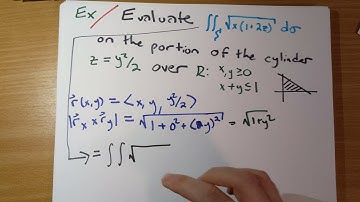 Ex/ Evaluate ∬_S √x(1+2z) dσ
on the portion of the cylinder
z = y²/2 over R: x,y ≥ 0
x+y ≤ 1
r⃗(x,y) = ⟨x, y, y²/2⟩
|r⃗ₓ × r⃗ᵧ| = √1+0²+(y)² = √1+y²
→ = ∬ √